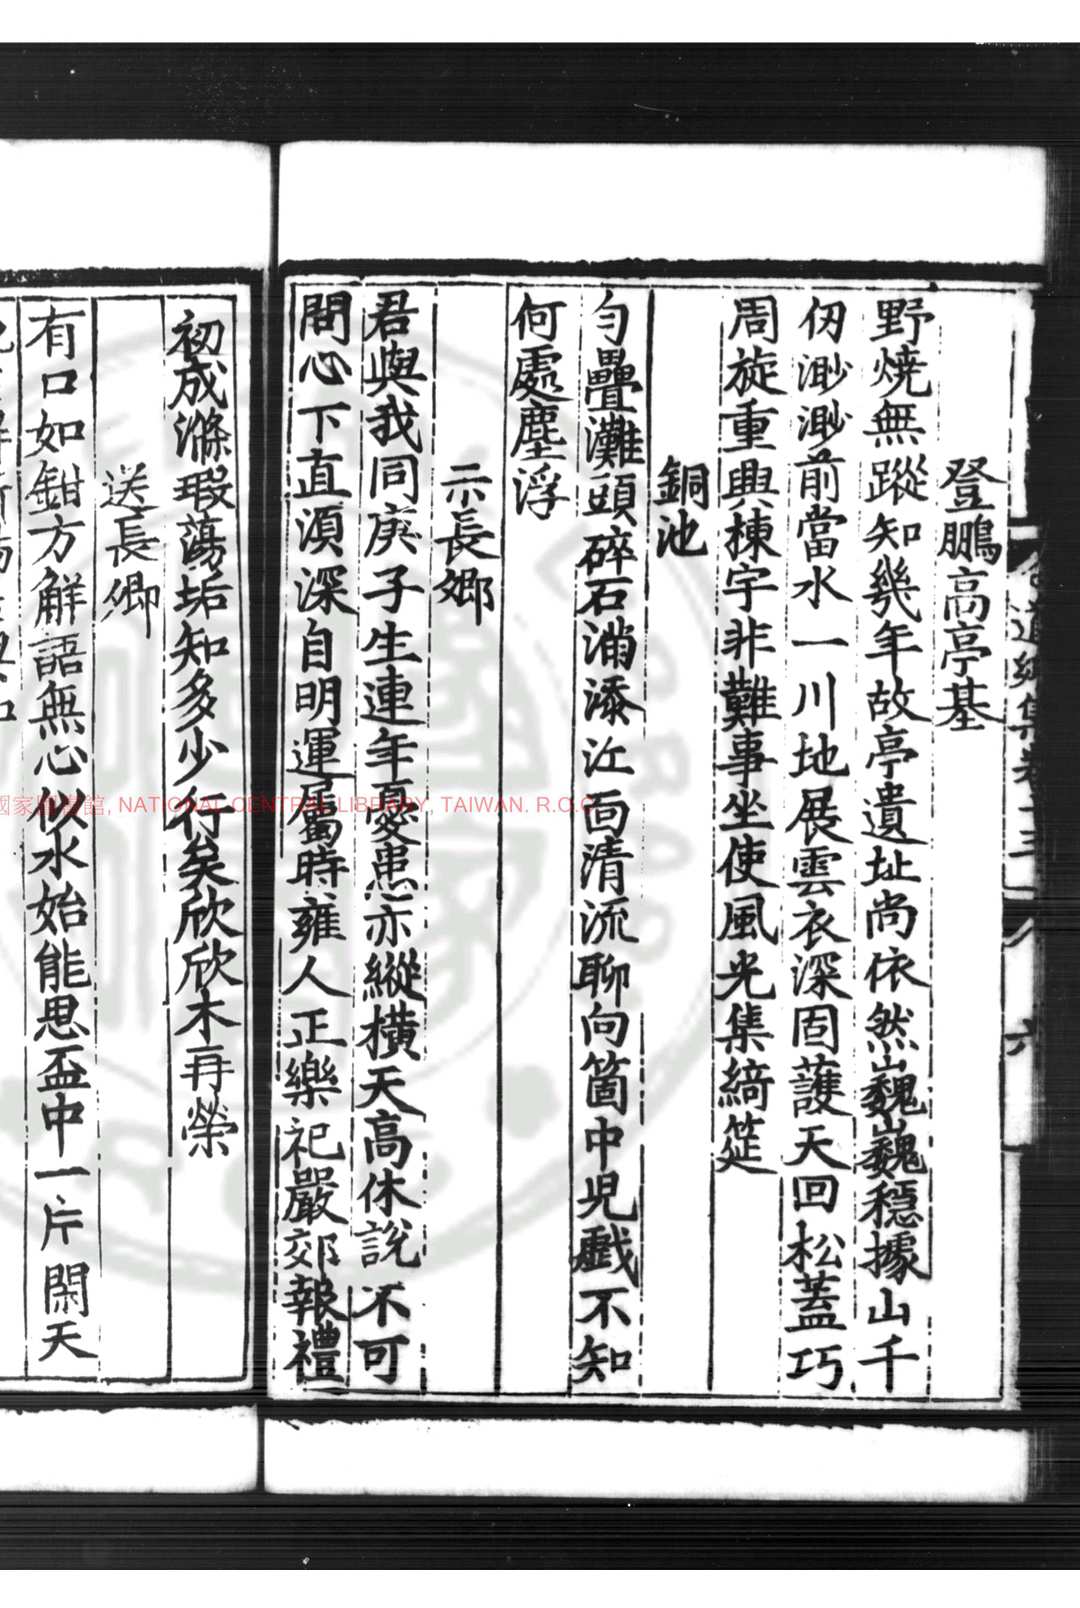 登鵬高亭基
野焼無蹤知幾年故亭遺址尚依然巍巍穩據山千
仞渺渺前當水一川地展雲衣深固護天回松蓋巧
周旋重興棟宇非難事坐使風光集綺筵
銅池
勻疊灘頭碎石滿添江面清流聊向箇中児戲不知
何處塵浮
示長鄉
君與我同庚子生連年憂患亦縱橫天高休說不可
問心下直須深自明運屬時雍人正樂祀嚴郊報禮
初成滌瑕蕩垢知多少行矣欣欣木再榮
送長卿
有口如鉗方解語無心似水始能思盃中一片閑天
國家圖書館, NATIONAL CENTRAL LIBRARY, TAIWAN. R.O.C